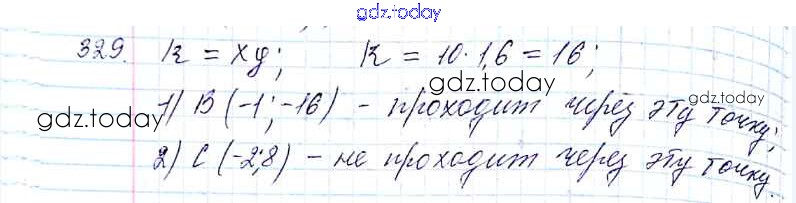 gdz.today
329. k = xy; K = 10·1,6 = 16;
gdz.today
1) B (-1; -16) - проходит через эту точку;
gdz.today
gdz.today
2) C (-2; 8) - не проходит через эту точку.